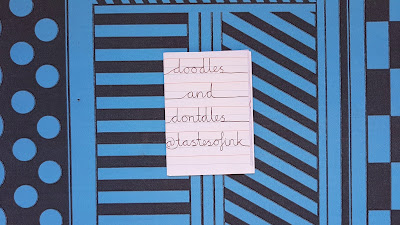 doodles
and
dontdles
@tastesofink